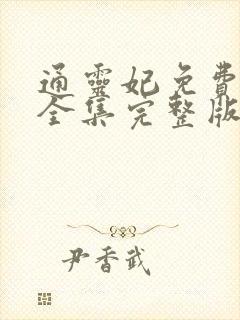 通靈妃免費
全集完整版
尹香武